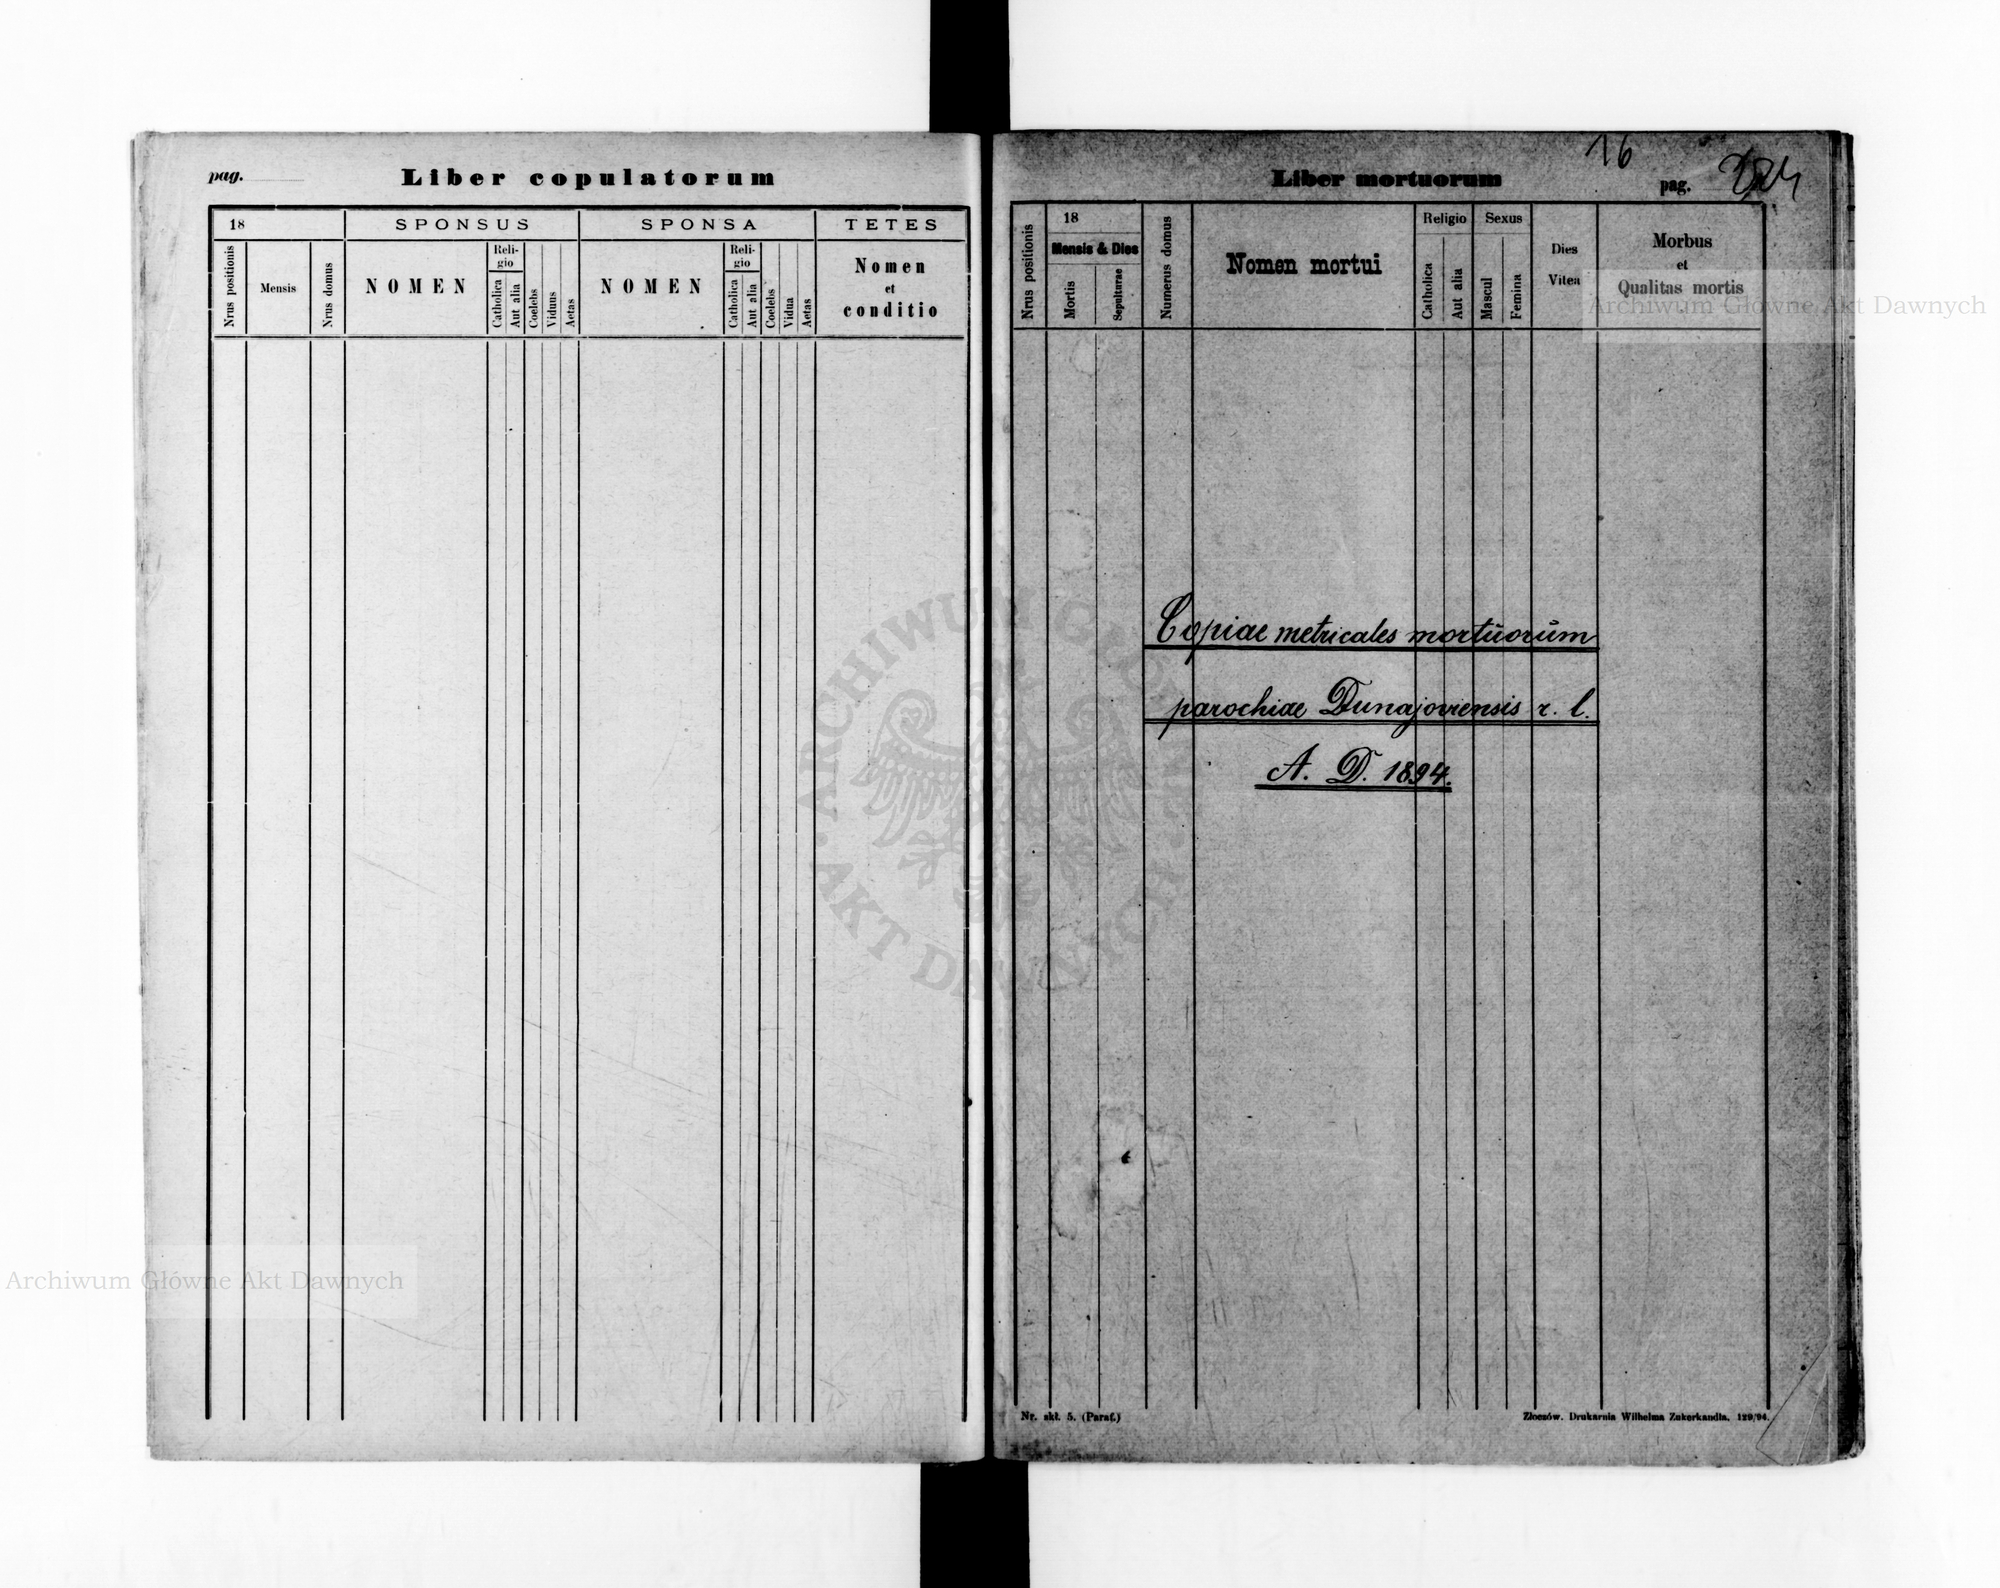 pag.
Liber copulatorum
18
SPONSUS
SPONSA
TETES
Nrus positionis
Mensis
Nrus domus
NOMEN
Reli-
gio
Catholica
Aut alia
Coelebs
Viduus
Aetas
NOMEN
Reli-
gio
Catholica
Aut alia
Coelebs
Vidua
Aetas
Nomen
et
conditio
16
Liber mortuorum
pag.
Nrus positionis
18
Mensis & Dies
Mortis
Sepulturae
Numerus domus
Nomen mortui
Religio
Catholica
Aut alia
Sexus
Mascul
Femina
Dies
Vitea
Morbus
et
Qualitas mortis
Archiwum Główne Akt Dawnych
Copiae metricales mortŭorŭm
parochiae Dunajoviensis r. l.
A. D. 1894.
ARCHIWUM GŁÓWNE
AKT DAWNYCH
Archiwum Główne Akt Dawnych
Nr. skł. 5. (Paraf.)
Złoczów. Drukarnia Wilhelma Zukerkandla. 129/94.